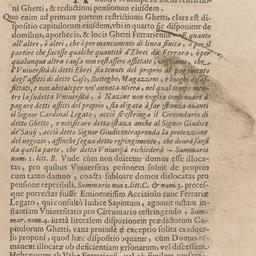 ni Ghetti, & reductioni pensionum eiusdem
Quo enim ad primum partem restrictionis Ghetti, clara est di-
positio capitulorum eiusdem, vbi in quarto sic disponitur de
domibus, apothecis, & locis Ghetti Ferrariensis E quanto
all'altre, ò altri, che ò per mancamento di linea finita, ò per
partire che facesse qualche quantità d'Ebrei da Ferrara, ò per
qualunque altra causa non restassero affittate, vogliamo, che
l'Vniuersità di detti Ebrei sia tenuta del proprio al pagamento
degl'affitti di dette Case, Botteghe, Magazzeni, e luoghi disaf-
fittati, e non abitati per vn' annata intera, nel qual tempo men-
tre la sudetta Vniuersità, ò Nazione non voglia continuare à
pagare detti affitti del proprio, sia obligata à far istanza auanti
il Signor Cardinal Legato, acciò si restringa il Circondario di
detto Ghetto, e notificare detta istanza anche al Signor Giudice
de'Sauij, acciò detto Signor Giudice intraprenda la protezzione
del negozio, affinche segua detto restringimento, che dourà farsi
da quella parte, che detta Vniuersità richiederà — Summario
num. 1. litt. B. Vnde cùm non duitetur domos esse illoca-
tas, pro quibus Vniuersitas pensionem soluit de proprio
cum tanto damno, coacta sublocare domos dislocatas pro
pensione reperibili. Summario num. 1. litt. C. & num. 3. precei-
que porrectas fuisse Eminentissimo Acciaiolo nunc Ferrariæ
Legato, qui consultò Iudice Sapientum, agnouit iustam in-
stantiam Vniuersitatis pro Circuitario restringendo, Sum-
mar. num. 4. iuxtà literalem dispositionem prædictorum Ca-
pitulorum Ghetti, vana proinde & exceptio solita exaduer-
so proponi, quod hæc dispositio optatur, cùm Domus re-
manent illocatæ ob deficientiam ersonarum, vel discessum